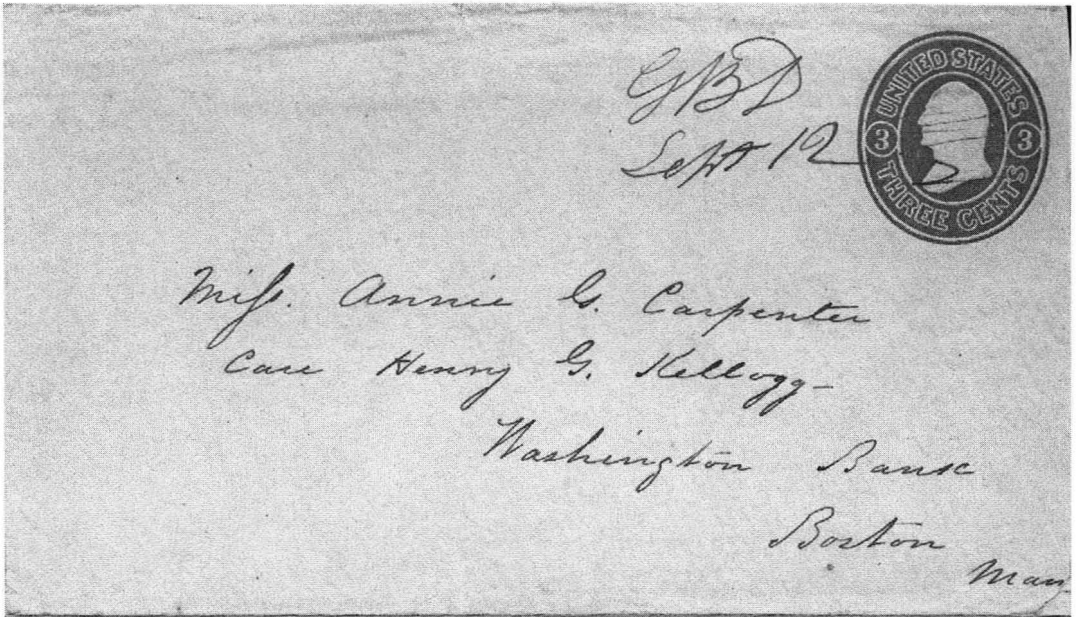 GBD
Sept 12
UNITED STATES
3 3
THREE CENTS
Miss. Annie G. Carpenter
Care Henry G. Kellogg
Washington Bank
Boston
Mass